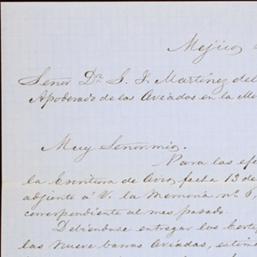 Mejico
Señor Dn. S. I. Martinez del
Apoderado de los Aviados en la
Muy Señor mio.
Para los
la Escritura de Avio, fecha 13 de
adjunto á V. la Memoria nº
correspondiente al mes pasado.
Debiendose entregar los
las nueve barras Aviadas,